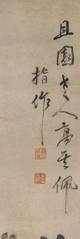 且園老人高其佩
指作